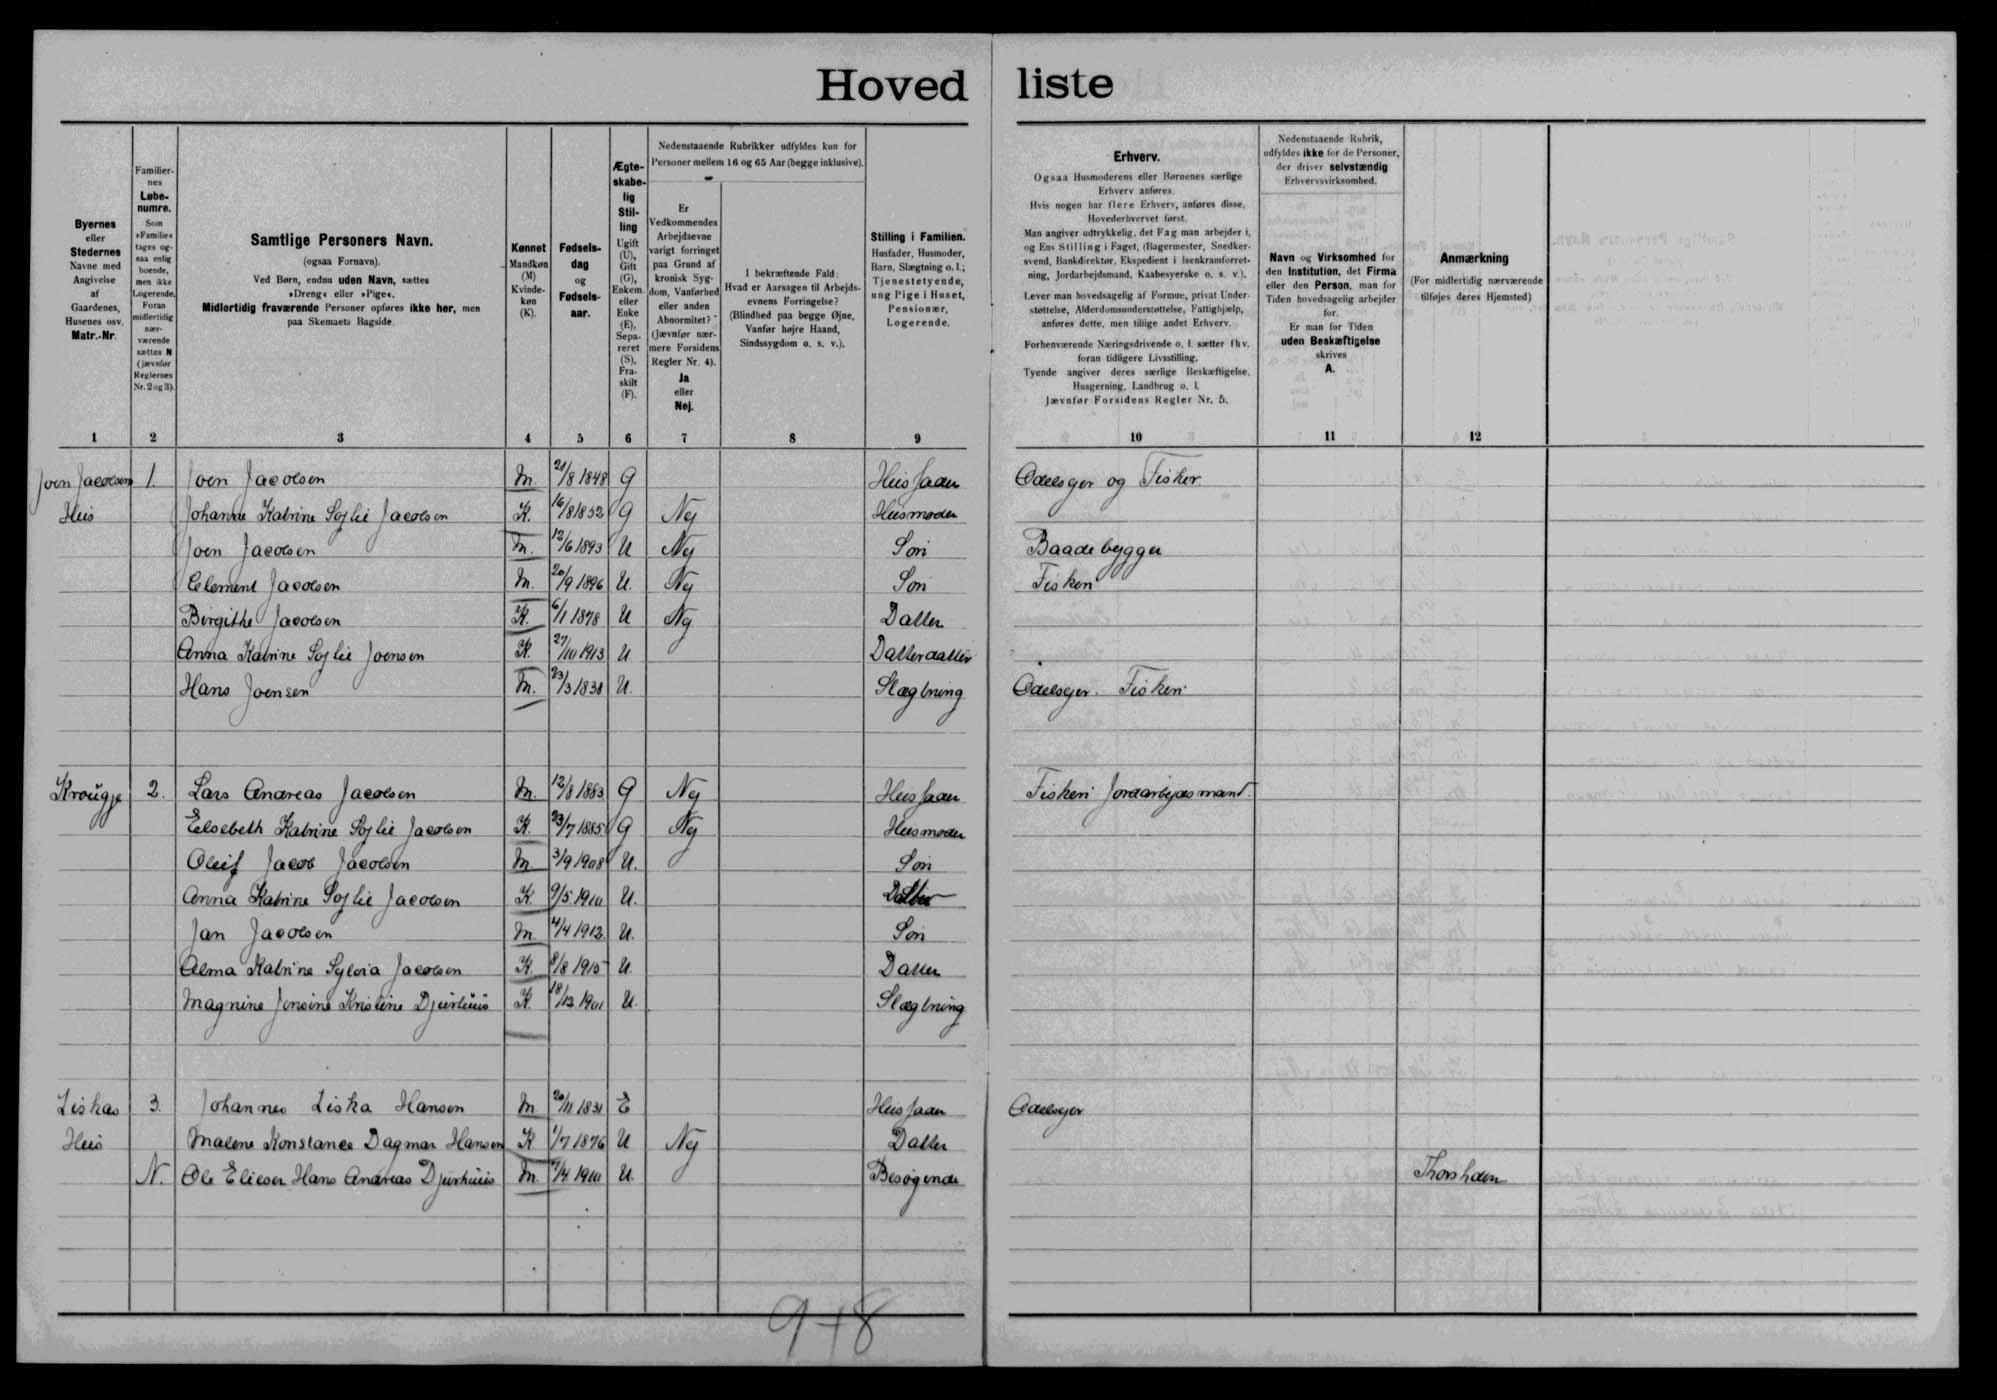 Hovedliste
Byernes eller Stedernes Navne med Angivelse af Gaardenes, Husenes osv. Matr.-Nr.
Familiernes Løbenumre. Som »Familie« tages ogsaa enlig boende, men ikke Logerende. Foran midlertidig nærværende sættes N (jævnfør Reglernes Nr. 2 og 3).
Samtlige Personers Navn.
(ogsaa Fornavn).
Ved Børn, endnu uden Navn, sættes »Dreng« eller »Pige«.
Midlertidig fraværende Personer opføres ikke her, men paa Skemaets Bagside.
Kønnet Mandkøn (M) Kvindekøn (K).
Fødselsdag og Fødselsaar.
Ægteskabelig Stilling Ugift (U), Gift (G), Enkem. eller Enke (E), Separeret (S), Fraskilt (F).
Nedenstaaende Rubrikker udfyldes kun for Personer mellem 16 og 65 Aar (begge inklusive).
Er Vedkommendes Arbejdsevne varigt forringet paa Grund af kronisk Sygdom, Vanførhed eller anden Abnormitet? (Jævnfør nærmere Forsidens Regler Nr. 4). Ja eller Nej.
I bekræftende Fald: Hvad er Aarsagen til Arbejdsevnens Forringelse? (Blindhed paa begge Øjne, Vanfør højre Haand, Sindssygdom o. s. v.).
Stilling i Familien. Husfader, Husmoder, Barn, Slægtning o. l.; Tjenestetyende, ung Pige i Huset, Pensionær, Logerende.
Erhverv.
Ogsaa Husmoderens eller Børnenes særlige Erhverv anføres.
Hvis nogen har flere Erhverv, anføres disse, Hovederhvervet først.
Man angiver udtrykkelig, det Fag man arbejder i, og Ens Stilling i Faget, (Bagermester, Snedkersvend, Bankdirektør, Ekspedient i Isenkramforretning, Jordarbejdsmand, Kaabesyerske o. s. v.).
Lever man hovedsagelig af Formue, privat Understøttelse, Alderdomsunderstøttelse, Fattighjælp, anføres dette, men tillige andet Erhverv.
Forhenværende Næringsdrivende o. l. sætter fhv. foran tidligere Livsstilling.
Tyende angiver deres særlige Beskæftigelse, Husgerning, Landbrug o. l.
Jævnfør Forsidens Regler Nr. 5.
Nedenstaaende Rubrik, udfyldes ikke for de Personer, der driver selvstændig Erhvervsvirksomhed.
Navn og Virksomhed for den Institution, det Firma eller den Person, man for Tiden hovedsagelig arbejder for.
Er man for Tiden uden Beskæftigelse skrives A.
Anmærkning
(For midlertidig nærværende tilføjes deres Hjemsted)
1 2 3 4 5 6 7 8 9 10 11 12
Joen Jacobsen 1. Joen Jacobsen M. 21/8 1848 G Husfader Odelsejer og Fisker.
Hus Johanne Katrine Sofie Jacobsen K. 16/8 1852 G Nej Husmoder
Joen Jacobsen M. 12/6 1893 U Nej Søn Baadebygger
Clement Jacobsen M. 20/9 1896 U. Nej Søn Fiskeri
Birgithe Jacobsen K. 6/1 1878 U Nej Datter
Anna Katrine Sofie Joensen K. 27/10 1913 U Datterdatter
Hans Joensen M. 23/3 1838 U. Slægtning Odelsejer. Fiskeri
Krougje 2. Lars Andreas Jacobsen M. 12/8 1883 G Nej Husfader Fiskeri Jordarbejdsmand.
Elsebeth Katrine Sofie Jacobsen K. 23/7 1885 G Nej Husmoder
Oleif Jacob Jacobsen M. 3/9 1908 U. Søn
Anna Katrine Sofie Jacobsen K. 9/5 1910 U. Datter
Jan Jacobsen M. 4/4 1912 U. Søn
Alma Katrine Sylvia Jacobsen K. 8/8 1915 U. Datter
Magnine Jensine Kristine Djurhuus K. 18/12 1901 U. Slægtning
Liskas 3. Johannes Liska Hansen M 20/11 1831 E Husfader Odelsejer
Hus Malene Konstance Dagmar Hansen K 1/7 1876 U Nej Datter
N. Ole Elieser Hans Andreas Djurhuus M. 7/4 1910 U. Besøgende Thorshavn
9+8